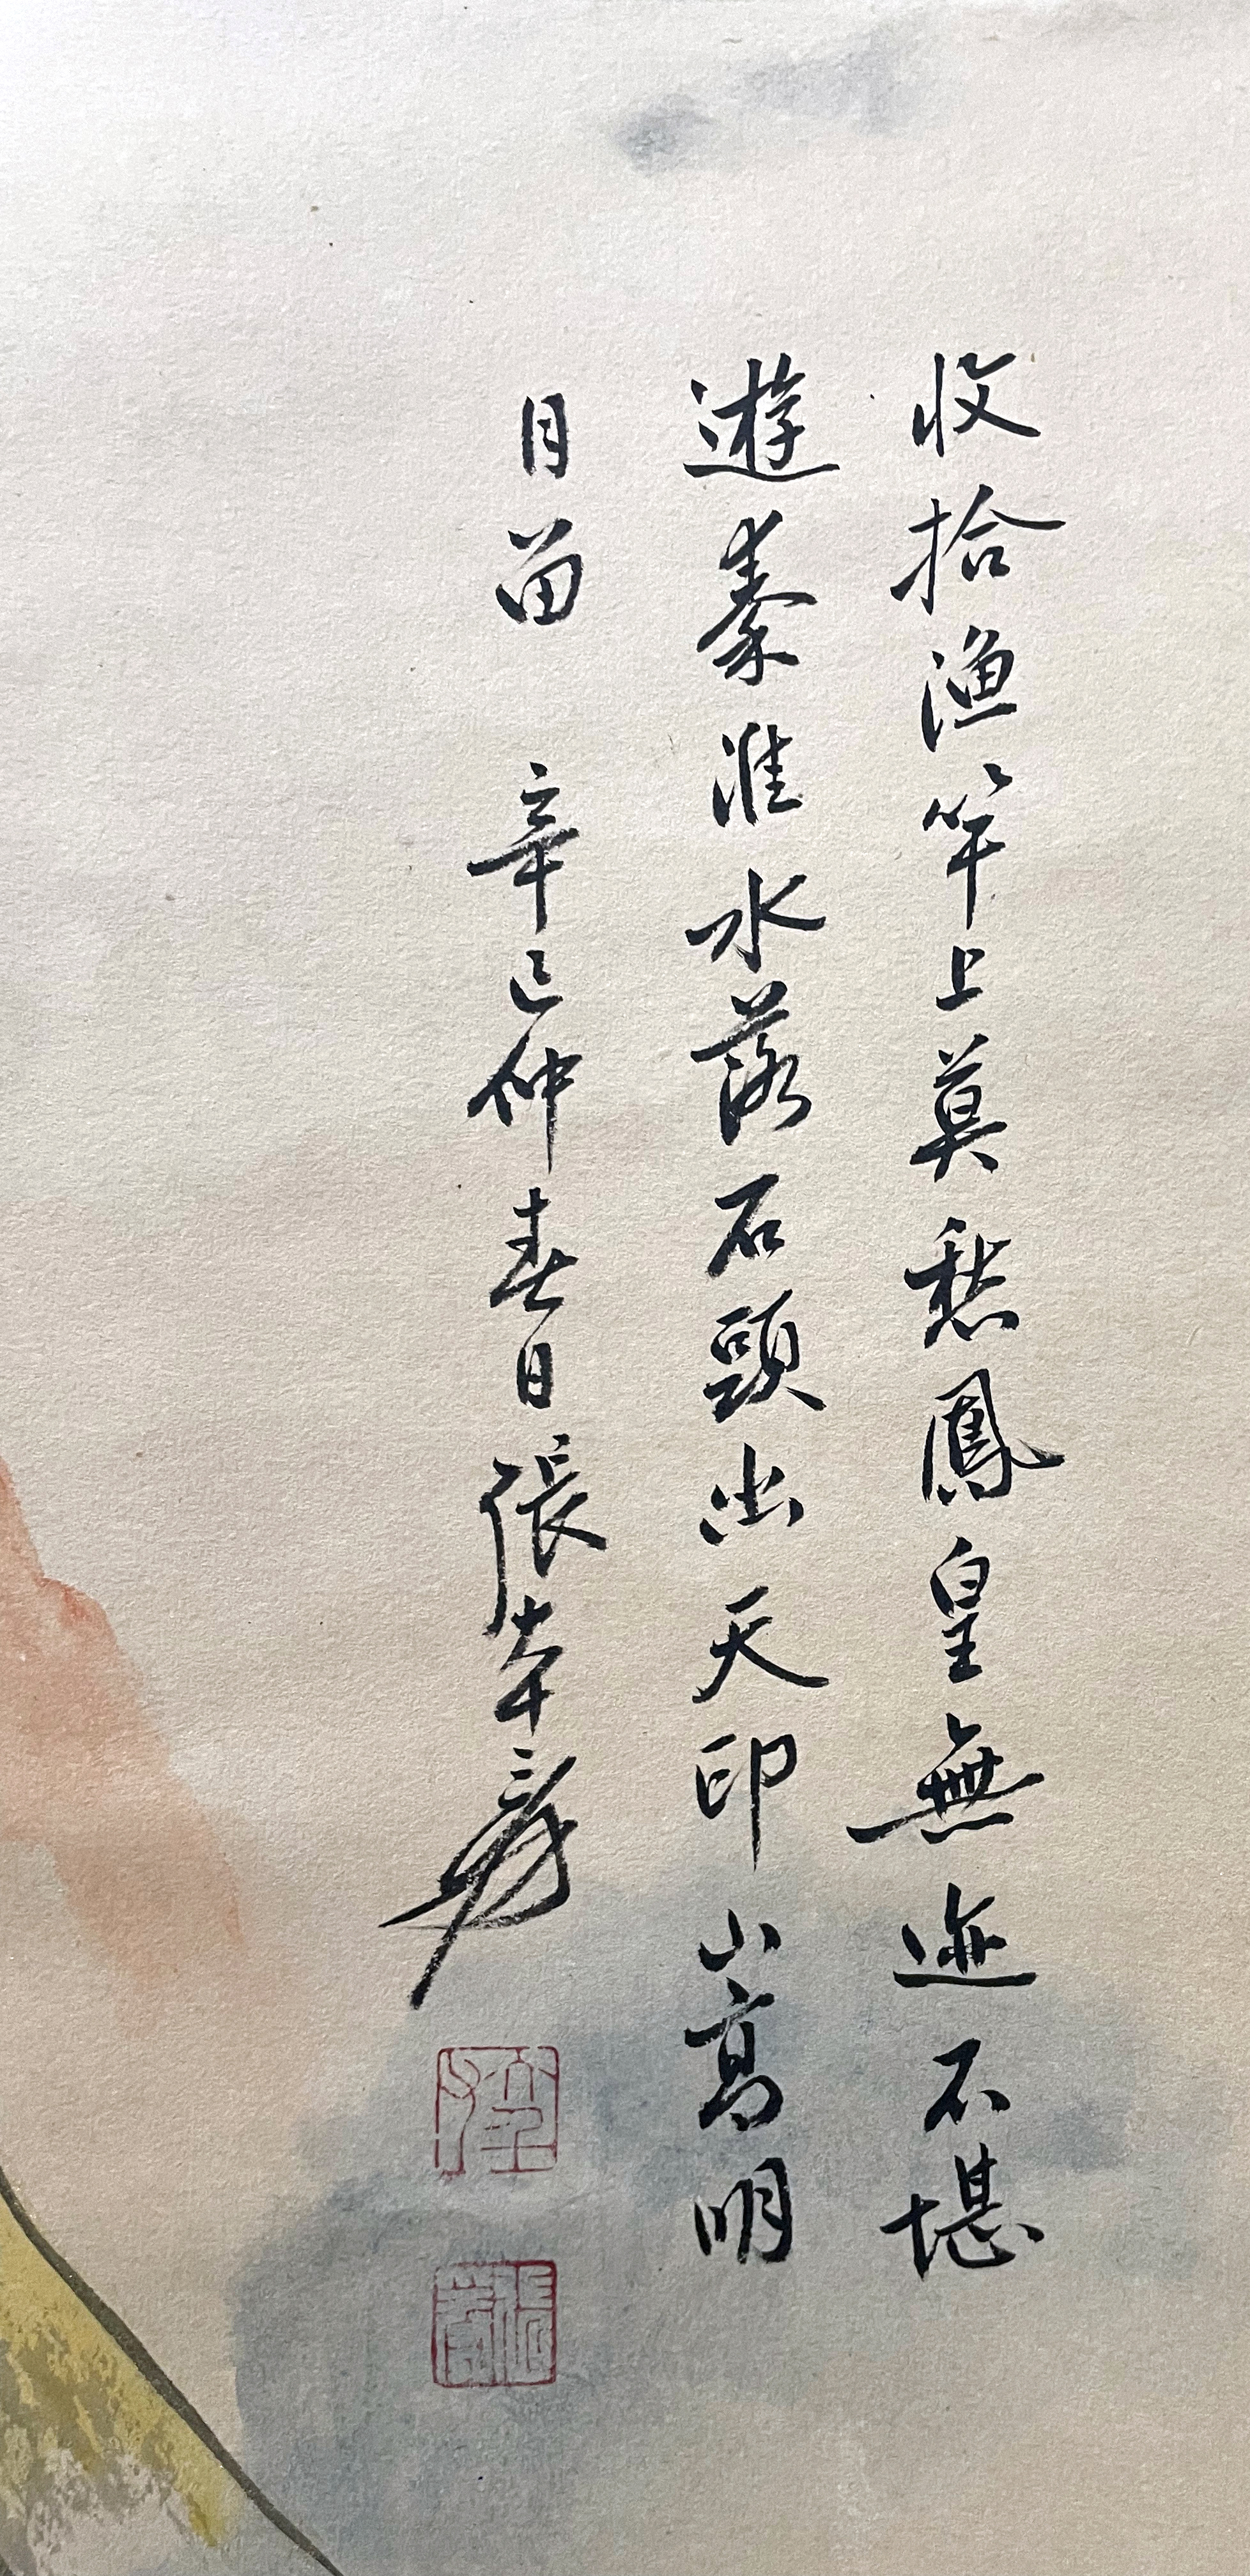 收拾漁竿上莫愁鳳皇無迹不堪
遊秦淮水落石頭出天印山高明
月留 辛巳仲春日張大千爰